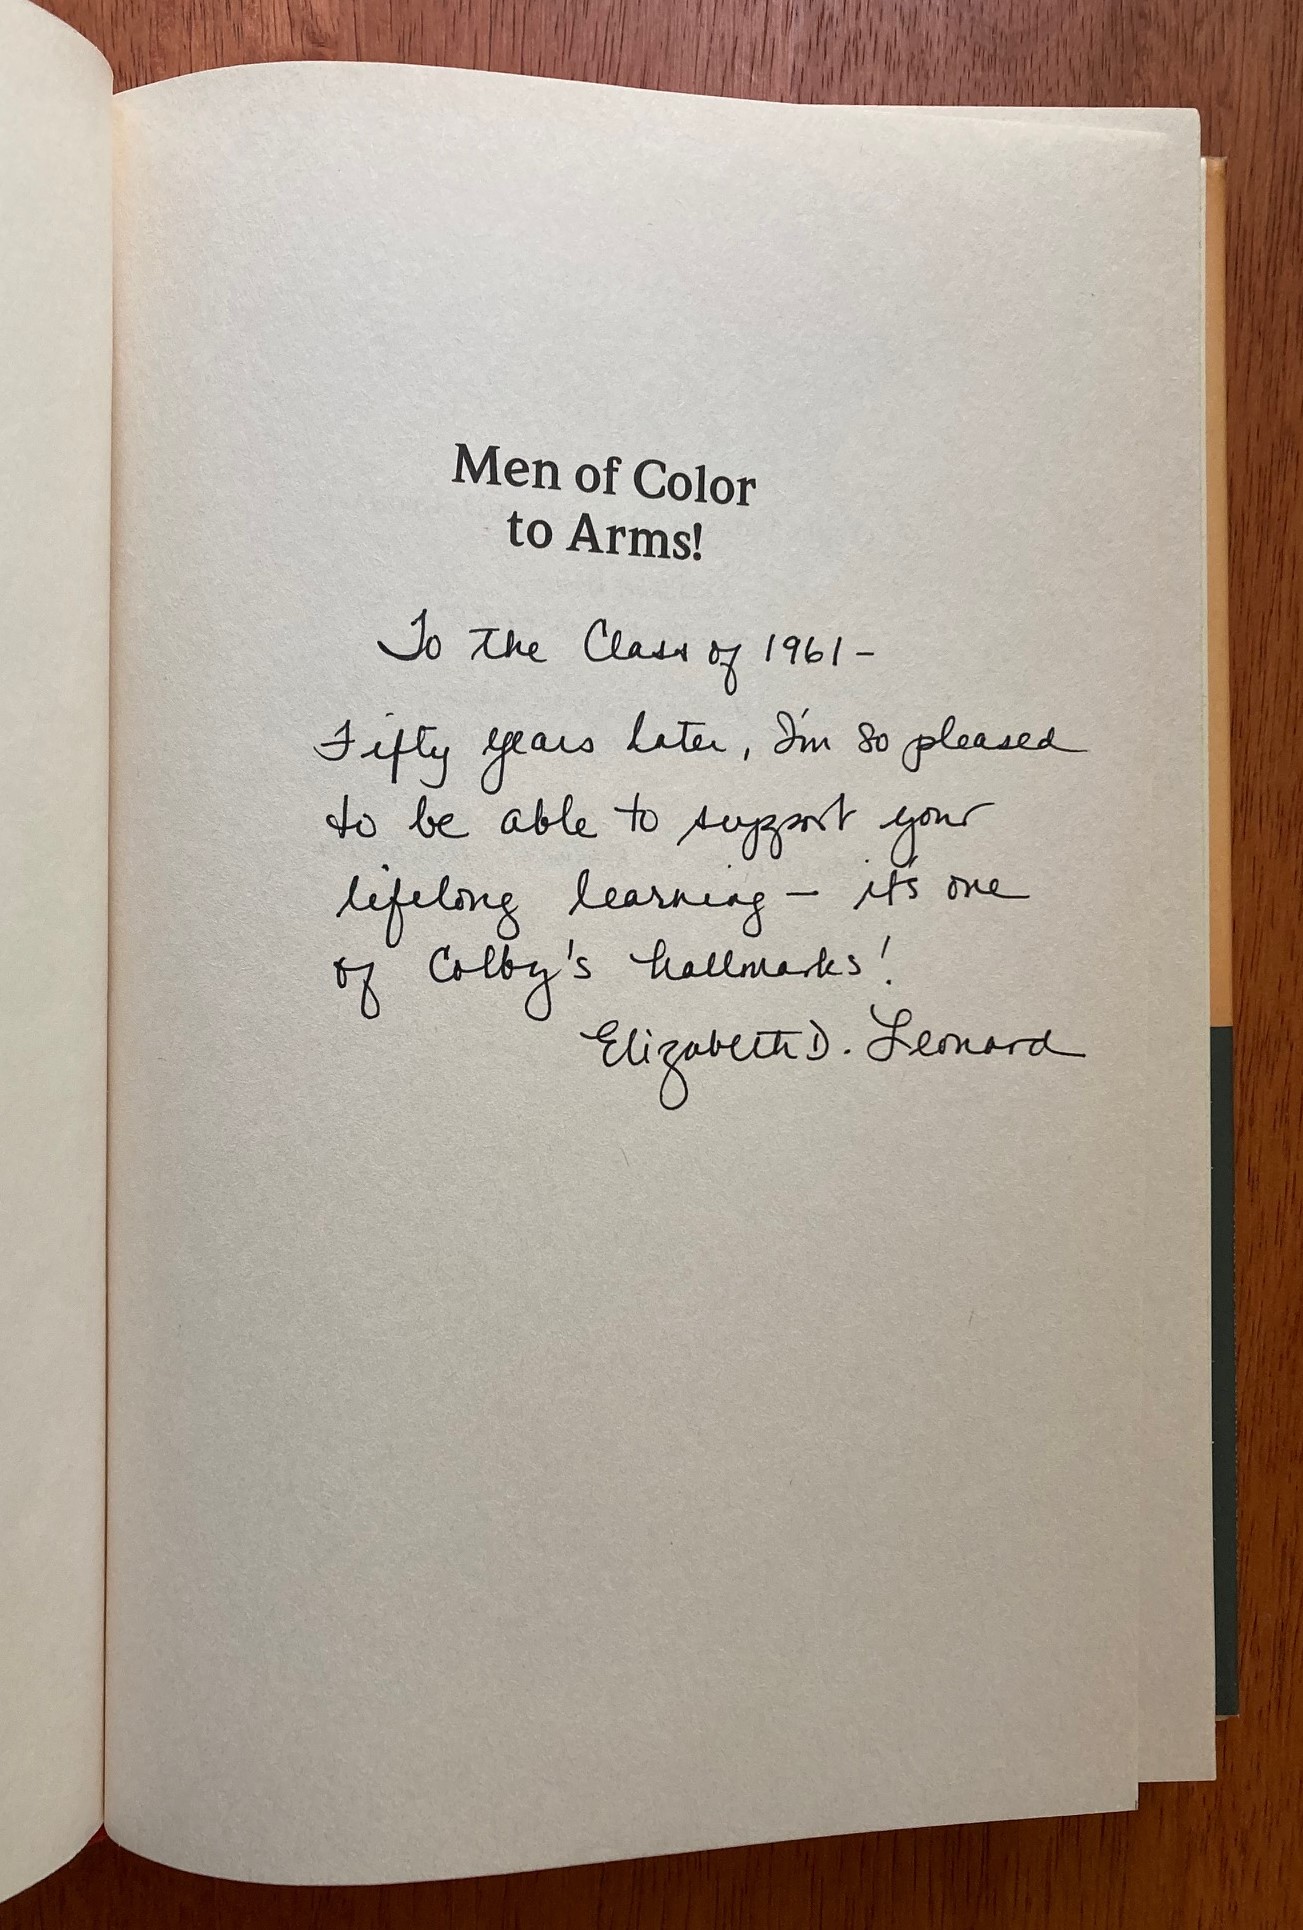 Men of Color
to Arms!
To the Class of 1961 –
Fifty years later, I'm so pleased
to be able to support your
lifelong learning – it's one
of Colby's hallmarks!
Elizabeth D. Leonard